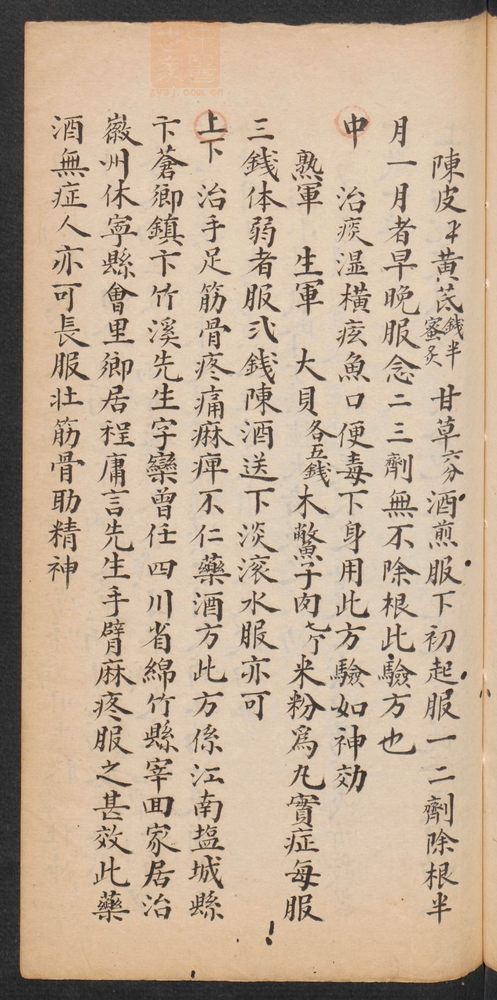 陳皮 黃芪錢半蜜炙 甘草六分 酒煎服下初起服一二劑除根半
月一月者早晚服念二三劑無不除根此驗方也
中 治痰湿橫痃魚口便毒下身用此方驗如神効
熟軍 生軍 大貝各五錢 木鱉子肉 米粉爲丸實症每服
三錢体弱者服弍錢陳酒送下淡滚水服亦可
上下 治手足筋骨疼痛麻痺不仁藥酒方此方係江南塩城縣
卞蒼鄉鎮卞竹溪先生字欒曾任四川省綿竹縣宰回家居治
徽州休寧縣會里鄉居程庸言先生手臂麻疼服之甚效此藥
酒無症人亦可長服壯筋骨助精神